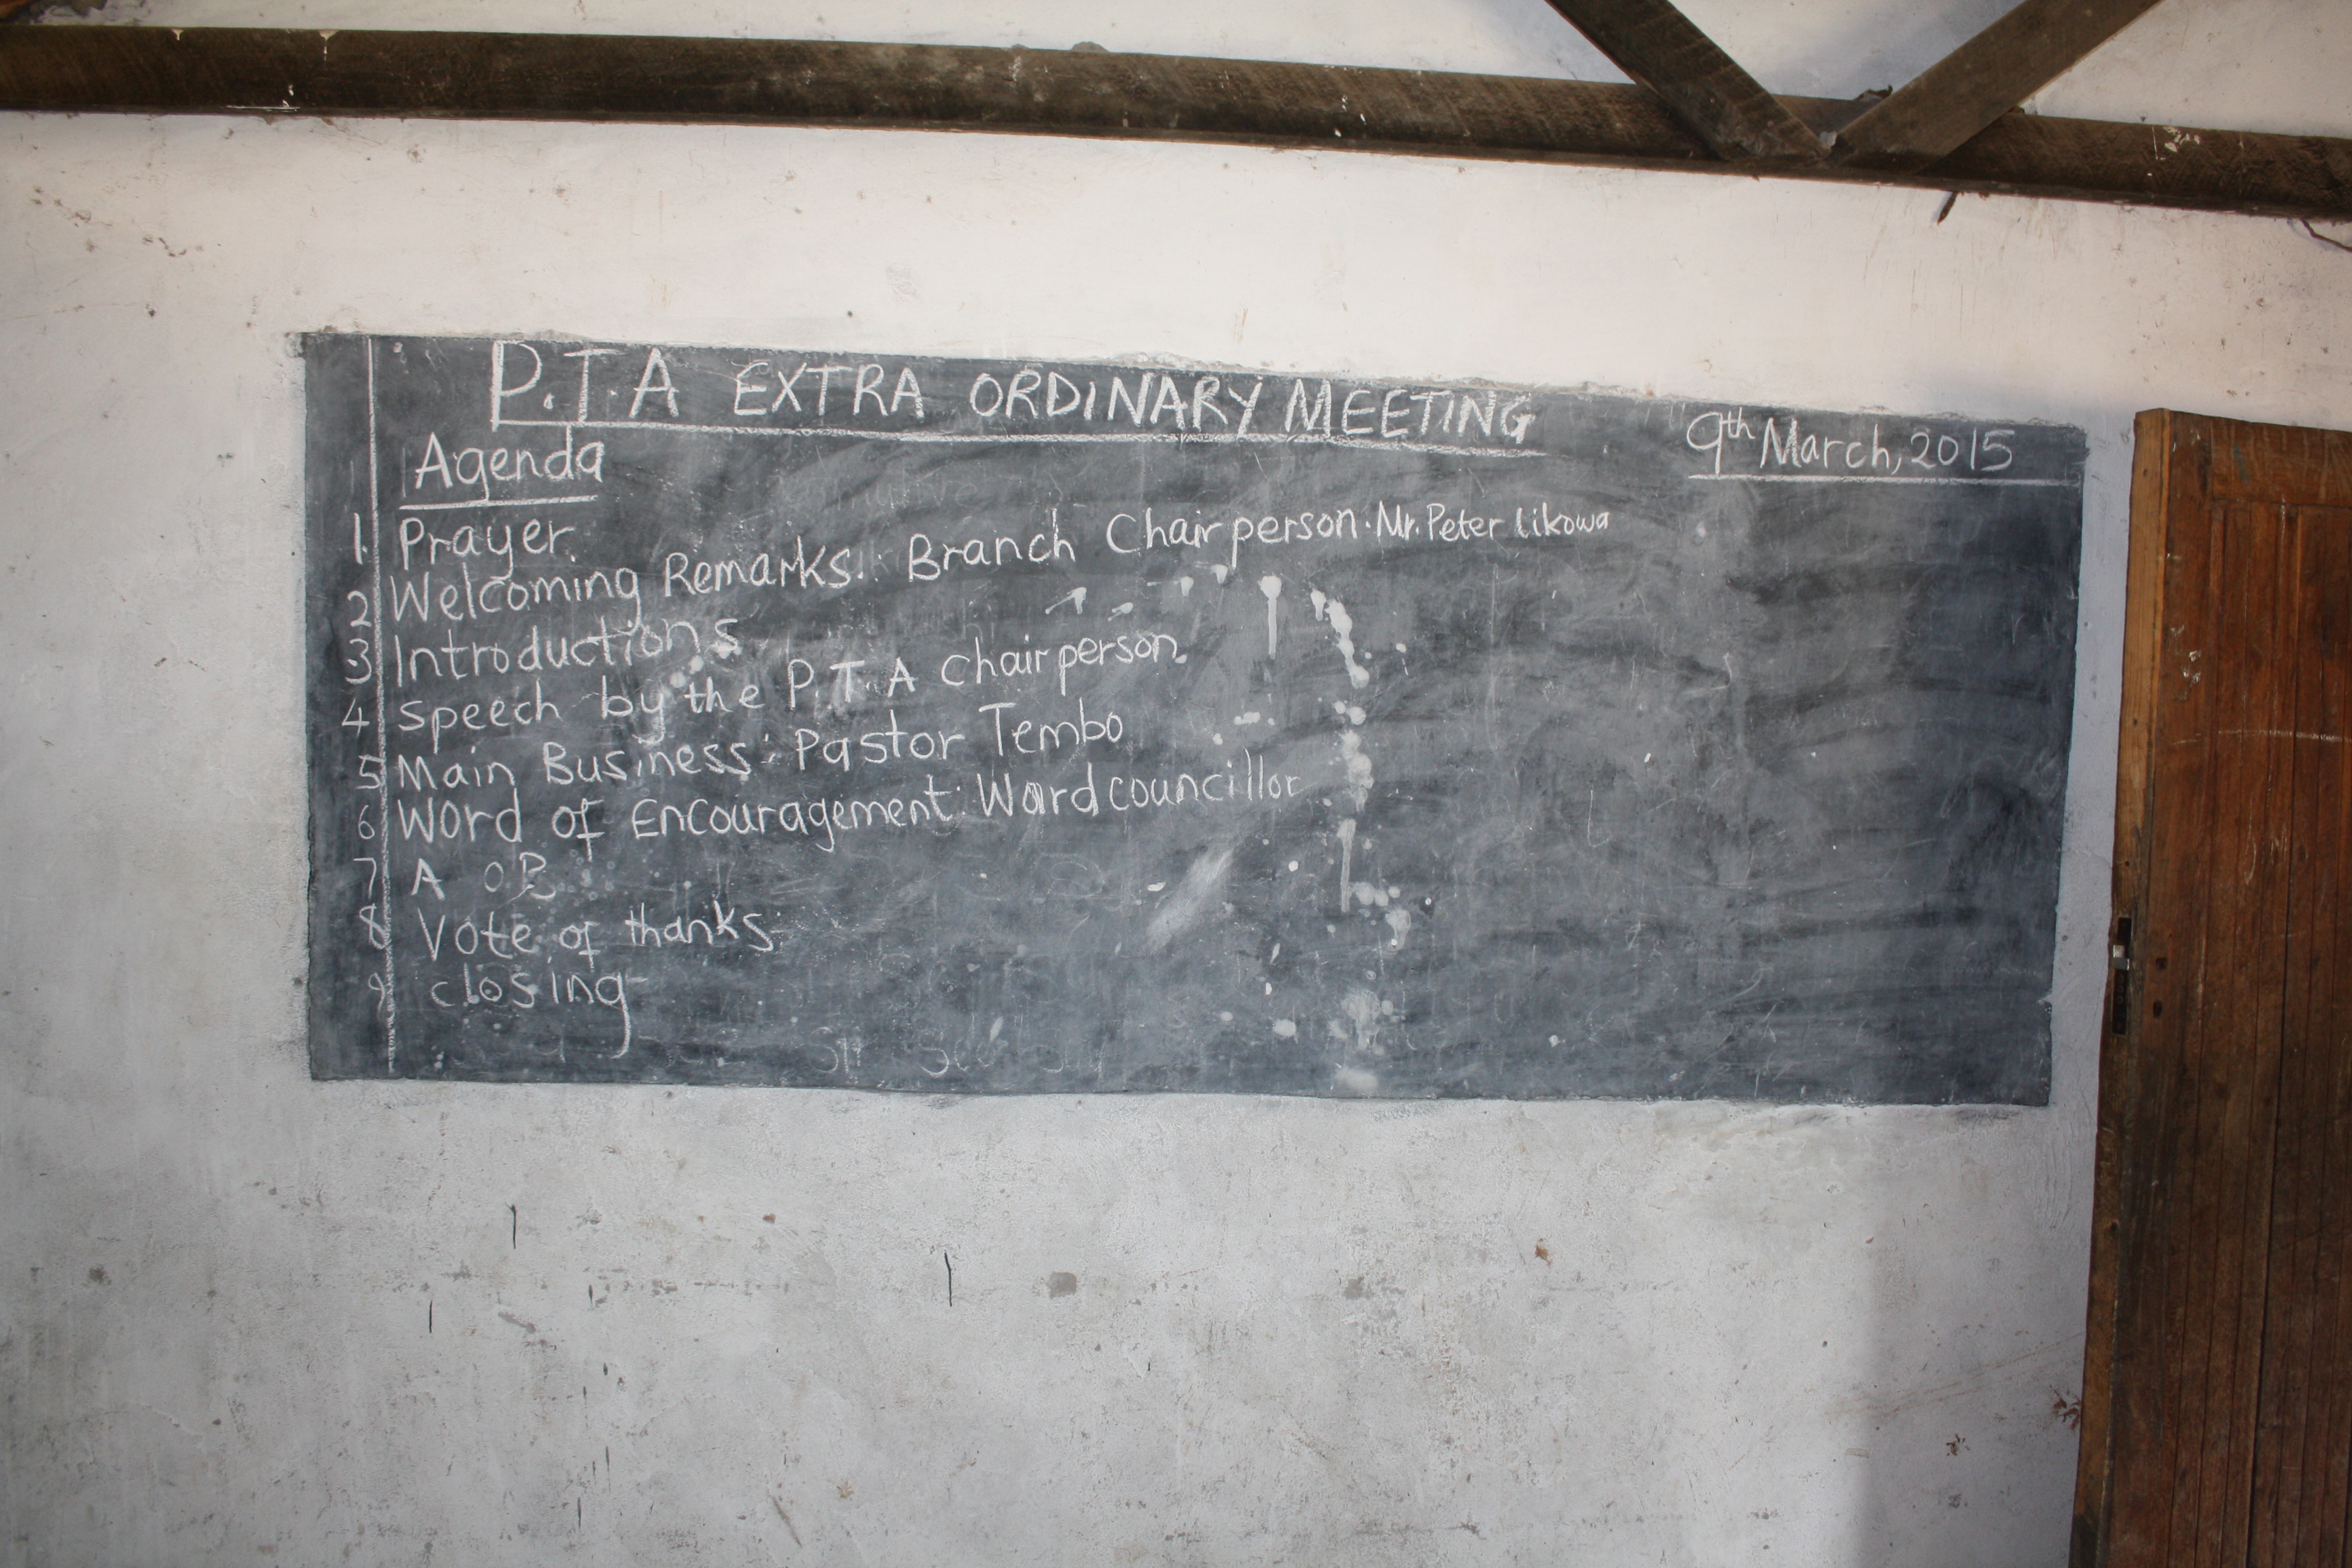 P.T.A EXTRA ORDINARY MEETING
9th March, 2015
Agenda
1. Prayer.
2 Welcoming Remarks: Branch Chairperson. Mr. Peter Likowa
3 Introductions
4 Speech by the P.T.A Chairperson.
5 Main Business: Pastor Tembo
6 Word of Encouragement: Ward councillor
7 A O.B
8 Vote of thanks
9 closing